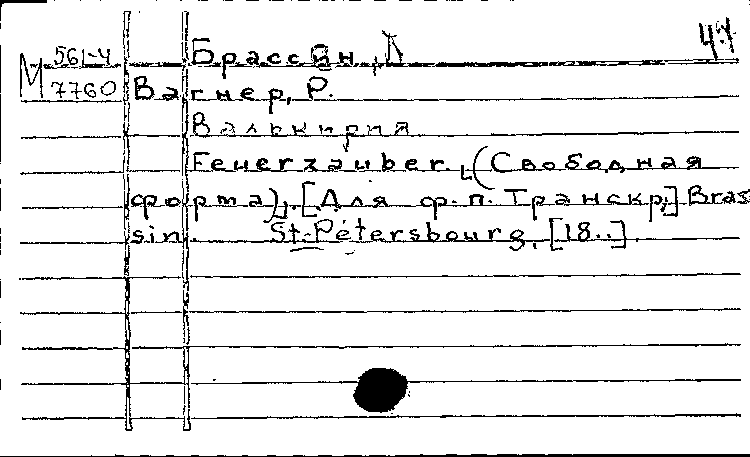 М 561-4 Брассин, Л
7760 Вагнер, Р.
Валькирия
Feuerzauber. (Свободная
форма). [Для ф.п. Транскр.] Bras
sin. St-Pétersbourg, [18..].